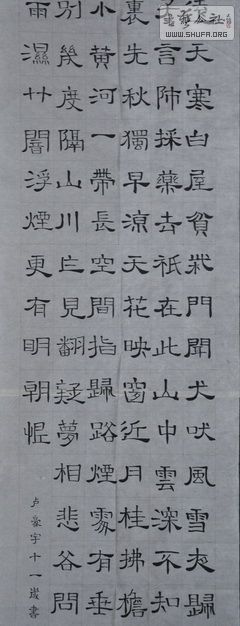 書藝公社
WWW.SHUFA.ORG
天寒白屋貧柴門聞犬吠風雪夜歸
言師採藥去祇在此山中雲深不知
裏先秋獨早涼天花映窗近月桂拂檐
小黃河一帶長空間指歸路煙處有垂
別幾度隔山川乍見翻疑夢相悲各問
雨濕竹闇浮煙更有明朝恨
卢豪宇十一歲書